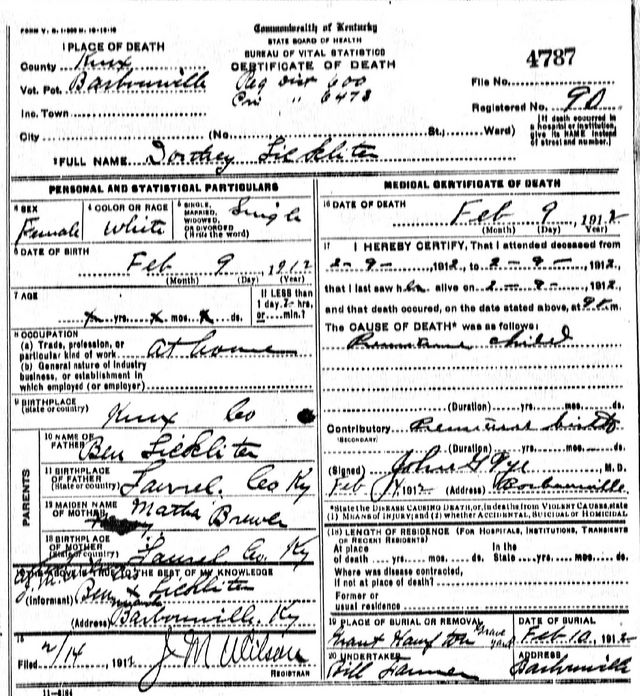 FORM V. S. 1-
Commonwealth of Kentucky
STATE BOARD OF HEALTH
BUREAU OF VITAL STATISTICS
CERTIFICATE OF DEATH
4787
1 PLACE OF DEATH
County Knux
Vot. Pct. Barbourville
Reg Dist 600
" 6473
File No.
Inc. Town
Registered No. 90
City (No. St.; Ward)
[If death occurred in a hospital or institution, give its NAME instead of street and number.]
2 FULL NAME Dorthey Sickliter
PERSONAL AND STATISTICAL PARTICULARS
3 SEX Female
4 COLOR OR RACE White
5 SINGLE, MARRIED, WIDOWED, OR DIVORCED (Write the word) Single
6 DATE OF BIRTH
Feb 9, 1912
(Month) (Day) (Year)
7 AGE
x yrs. x mos. x ds.
If LESS than 1 day, 2 hrs. or min.?
8 OCCUPATION
(a) Trade, profession, or particular kind of work at home
(b) General nature of industry business, or establishment in which employed (or employer)
9 BIRTHPLACE (State or country)
Knux Co
PARENTS
10 NAME OF FATHER Ben Sickliter
11 BIRTHPLACE OF FATHER (State or country) Laurel Co Ky
12 MAIDEN NAME OF MOTHER Martha Brewer
13 BIRTHPLACE OF MOTHER (State or country) Laurel Co. Ky
14 THE ABOVE IS TRUE TO THE BEST OF MY KNOWLEDGE
(Informant) Ben x Sickliter
(Address) Barbourville, Ky
15
Filed 2/14, 1912 J M Wilson
REGISTRAR
11-8184
MEDICAL CERTIFICATE OF DEATH
16 DATE OF DEATH
Feb 9, 1912
(Month) (Day) (Year)
17 I HEREBY CERTIFY, That I attended deceased from
2-9-, 1912, to 2-9-, 1912,
that I last saw her alive on 2-9-, 1912,
and that death occured, on the date stated above, at 9 P. m.
The CAUSE OF DEATH* was as follows:
Premature child
(Duration) yrs. mos. ds.
Contributory Premature birth
(SECONDARY)
(Duration) yrs. mos. ds.
(Signed) John G Pye M. D.
Feb 1912 (Address) Barbourville
*State the DISEASE CAUSING DEATH, or, in deaths from VIOLENT CAUSES, state
(1) MEANS OF INJURY; and (2) whether ACCIDENTAL, SUICIDAL OR HOMICIDAL
(18) LENGTH OF RESIDENCE (FOR HOSPITALS, INSTITUTIONS, TRANSIENTS OR RECENT RESIDENTS)
At place of death yrs. mos. ds. In the State yrs. mos. ds.
Where was disease contracted, if not at place of death?
Former or usual residence
19 PLACE OF BURIAL OR REMOVAL
Grant Hampton Grave yard
DATE OF BURIAL
Feb 10, 1912
20 UNDERTAKER
Bill Farmer
ADDRESS
Barbourville